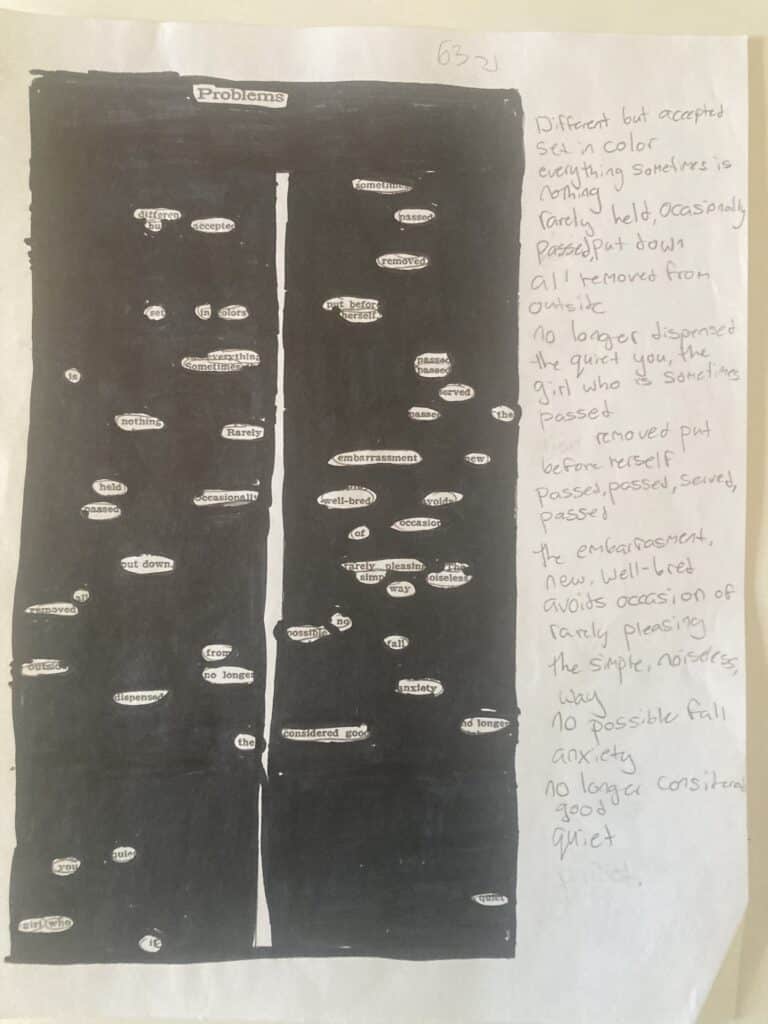 63
Problems
differen
bu
accepted
set
in
olors
everything
Sometimes
is
nothing
Rarely
held
passed
occasionally
put down.
all
removed
from
outside
no longer
dispensed
the
you
quiet
girl who
is
sometimes
passed
removed
put before
herself
passed
passed
served
passed
the
embarrassment
new
well-bred
avoids
of
occasion
rarely pleasing
The
simp
noiseless
way
no
possible
fall
anxiety
no longer
considered good
quiet
Different but accepted
set in color
everything sometimes is
nothing
rarely held, ocasionally
passed, put down
all removed from
outside
no longer dispensed
the quiet you, the
girl who is sometimes
passed
removed put
before herself
passed, passed, served,
passed
the embarrasment,
new, well-bred
avoids occasion of
rarely pleasing
the simple, noiseless,
way
no possible fall
anxiety
no longer considered
good
quiet